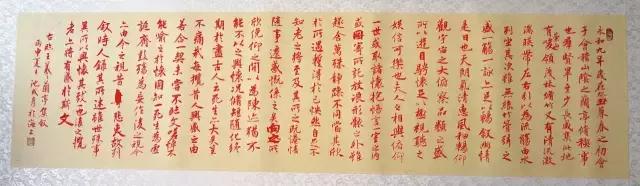 永和九年歲在癸丑暮春之初會
于會稽山陰之蘭亭脩稧事
也羣賢畢至少長咸集此地
有崇山峻領茂林脩竹又有清流激
湍暎帶左右引以為流觴曲水
列坐其次雖無絲竹管弦之
盛一觴一詠亦足以暢敘幽情
是日也天朗氣清惠風和暢仰
觀宇宙之大俯察品類之盛
所以遊目騁懷足以極視聽之
娛信可樂也夫人之相與俯仰
一世或取諸懷抱悟言一室之內
或因寄所託放浪形骸之外雖
趣舍萬殊靜躁不同當其欣
於所遇蹔得於己怏然自足不
知老之將至及其所之既惓情
隨事遷感慨係之矣向之所
欣俛仰之閒以為陳迹猶不
能不以之興懷況脩短隨化終
期於盡古人云死生亦大矣豈
不痛哉每攬昔人興感之由
若合一契未嘗不臨文嗟悼不
能喻之於懷固知一死生為虛
誕齊彭殤為妄作後之視今
亦由今之視昔悲夫故列
敘時人錄其所述雖世殊事
異所以興懷其致一也後之攬
者亦將有感於斯文
臨王羲之蘭亭集敘
丙申夏沈月於海上